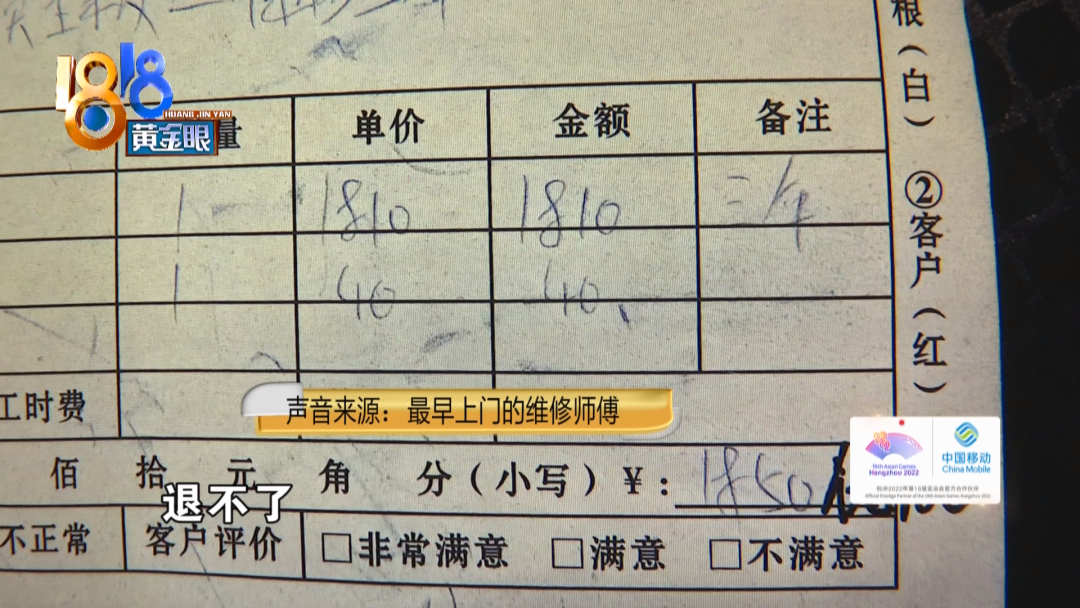 1818
HUANG JIN YAN
黄金眼
量 单价 金额 备注
1 1810 1810 三年
1 40 40
工时费
声音来源：最早上门的维修师傅
佰 拾 元 角 分（小写）￥：1850
退不了
不正常 客户评价 □非常满意 □满意 □不满意
根（白） ②客户（红）
19th Asian Games
Hangzhou 2022
中国移动
China Mobile
杭州2022年第19届亚运会官方合作伙伴
Official Prestige Partner of the 19th Asian Games Hangzhou 2022